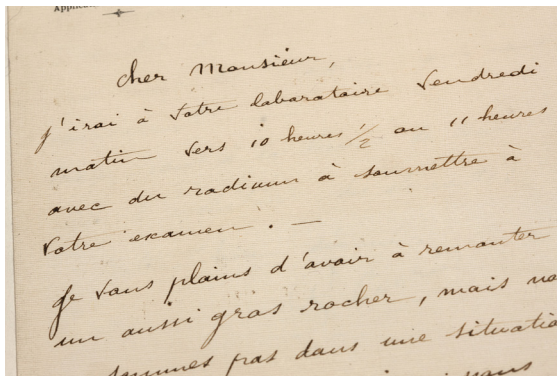 Applica
cher Monsieur,
j'irai à votre laborataire vendredi
matin vers 10 heures 1/2 ou 11 heures
avec du radium à soumettre à
votre examen. —
Je vous plains d'avoir à remonter
un aussi gros rocher, mais no
sommes pas dans une situatio
vous